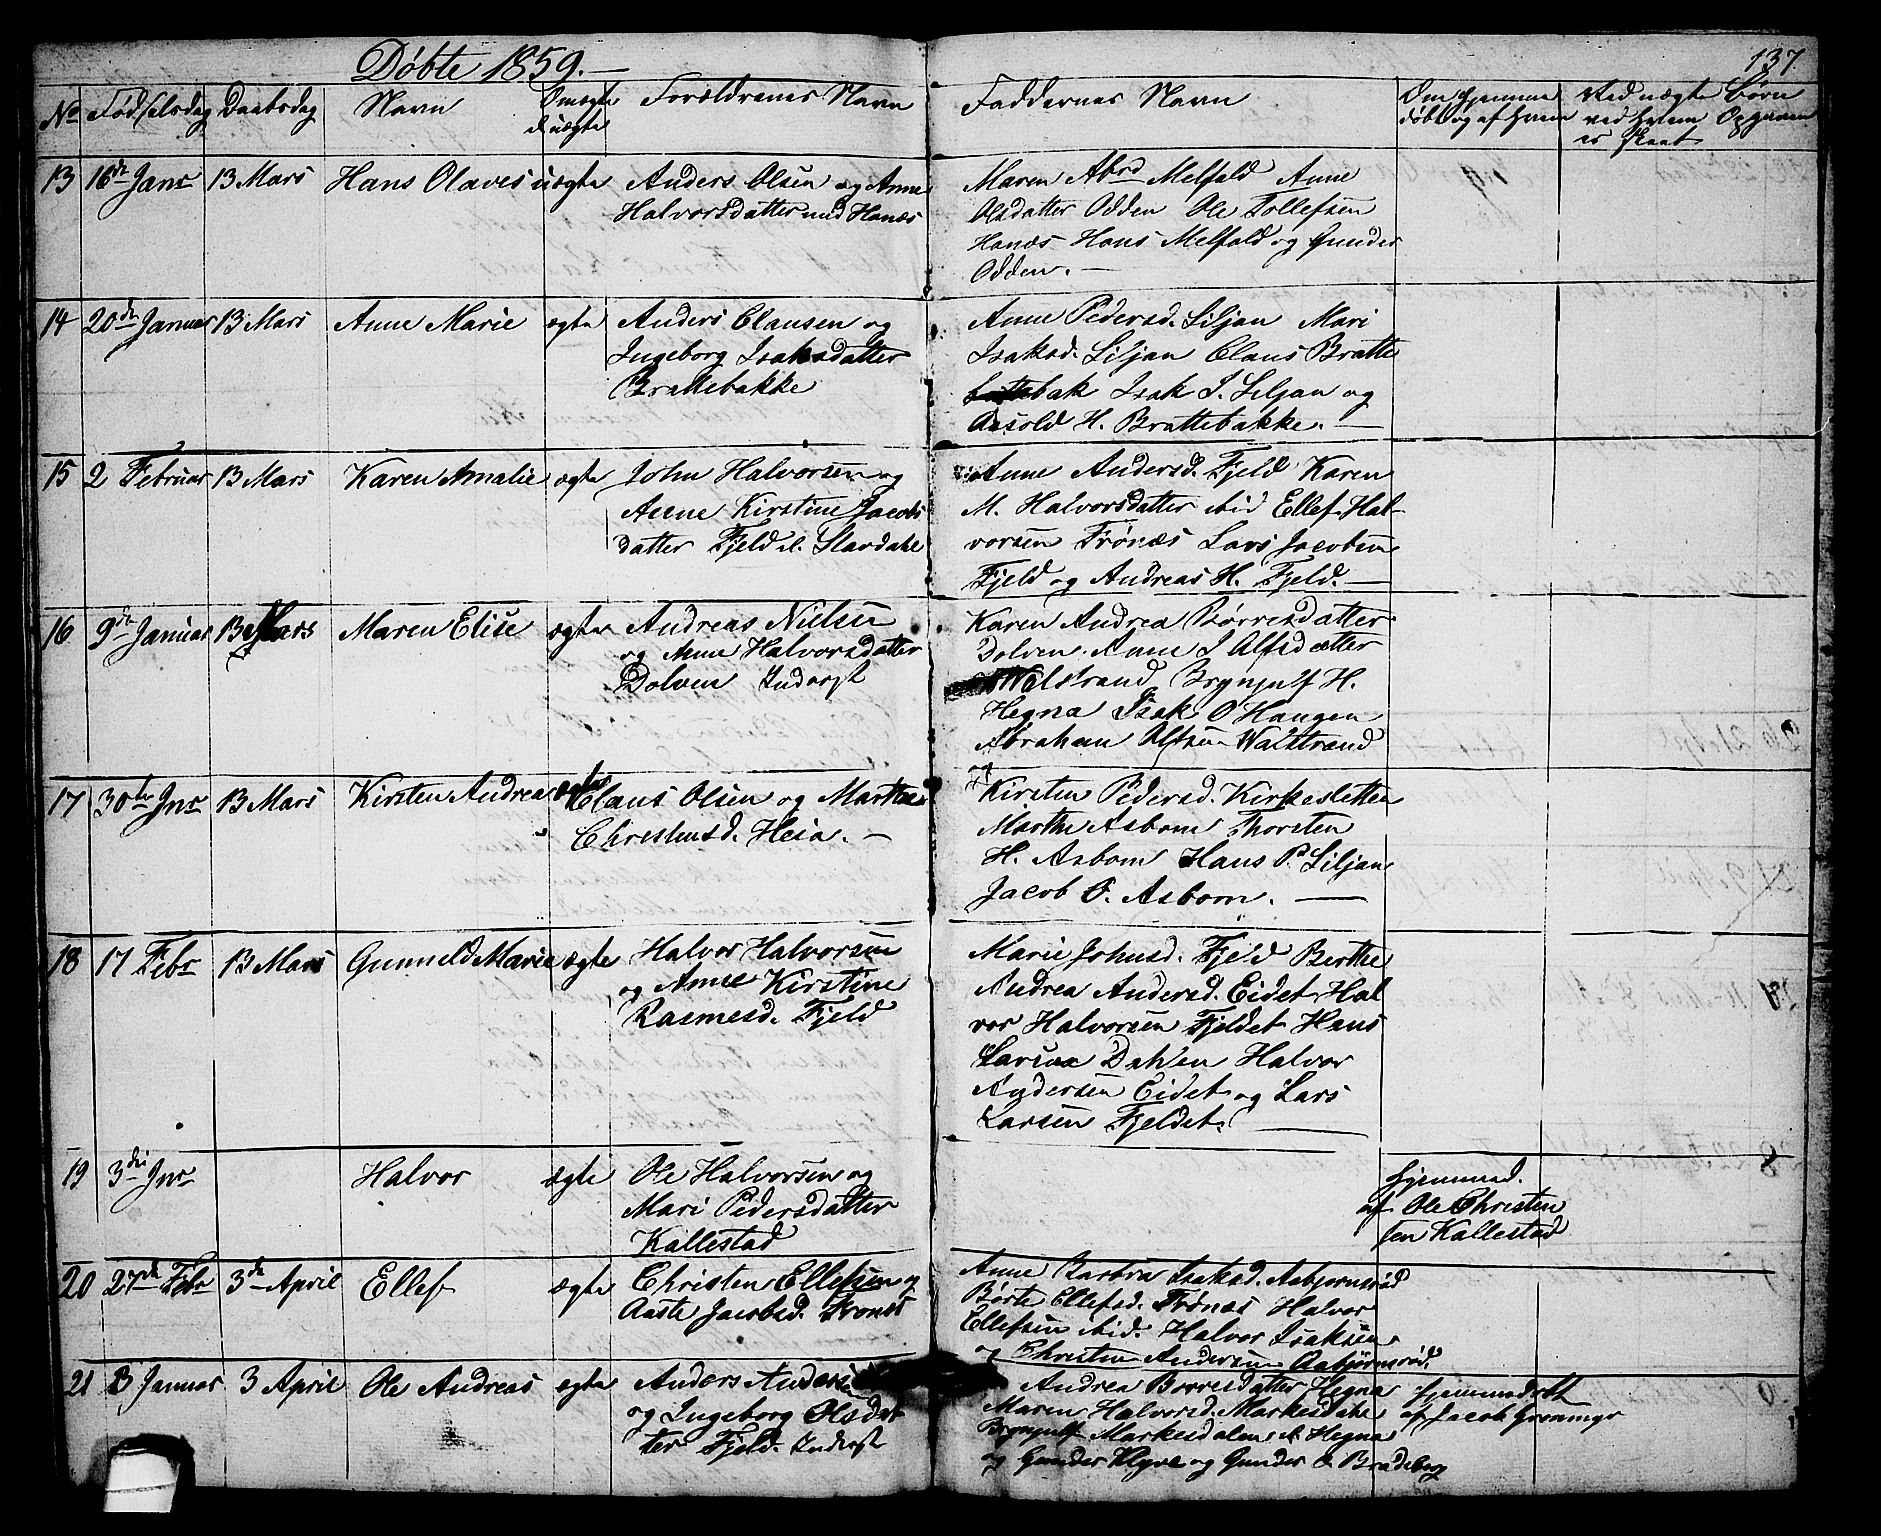 Døbte 1859.—
137
No Fødselsdag Daabsdag Navn Om ægte el. uægte Forældrenes Navn Faddernes Navn Om hjemme døbt og af hvem Ved uægte Børn ved hvem Opgaven er skeet
13 16de Janr 13 Mars Hans Olaves uægte Anders Olsen og Anne
Halvorsdatter Hanæs
Maren Abrd Melfald Anne
Olsdatter Odden Ole Tollefsen
Hanæs Hans Melfald og Gunder
Odden.—
14 20de Januar 13 Mars Anne Marie ægte Anders Clausen og
Ingeborg Isaksdatter
Brattebakke
Anne Pedersd. Liljan Mari
Isaksd. Liljan Claus Bratte
bak Isak I. Liljan og
Aasold H. Brattebakke.—
15 2 Februar 13 Mars Karen Amalie ægte John Halvorsen og
Anne Kirstine Jacobs
datter Fjeld
Anne Andersd. Fjeld Karen
M. Halvorsdatter ibid Ellef Hal-
vorsen Trönæs Lars Jacobsen
Fjeld og Andreas H. Fjeld.—
16 9de Januar 13 Mars Maren Elise ægte Andreas Nielsen
og Anne Halvorsdatter
Dolven Inderst
Karen Andrea Börresdatter
Dolven Anne I Alfsdatter
Walstrand Brynjulf H.
Hegna Isak O Haugen
Abraham Olsen Walstrand
17 30te Jnr 13 Mars Kirsten Andrea ægte Claus Olsen og Marthe
Christensd. Heia.—
Kirsten Pedersd. Kirkesletten
Marthe Asbom Thorsten
H. Asbom Hans P. Liljan
Jacob O. Asbom.—
18 17 Febr 13 Mars Gunneld Marie ægte Halvor Halvorsen
og Anne Kirstine
Rasmusd. Fjeld
Marie Johnsd. Fjeld Berthe
Andrea Andersd. Eidet Hal
vor Halvorsen Fjeldet Hans
Larsen Dahlen Halvor
Andersen Eidet og Lars
Larsen Fjeldet.
19 3die Jnr Halvor ægte Ole Halvorsen og
Mari Pedersdatter
Kallestad
hjemmed.
af Ole Christen
sen Kallestad
20 27de Febr 3de April Ellef ægte Christen Ellefsen og
Aaste Jacobsd. Trones
Anne Barbra Isaksd. Asbjornsröd
Börte Ellefsd. Trönæs Halvor
Ellefsen ibid. Halvor Isaksen
og Christen Andersen Aasbjörnsröd.
21 3 Januar 3 April Ole Andreas ægte Anders Andersen
og Ingeborg Olsdat
ter Fjeld. Inderst
Andrea Borresdatter Hegna
Maren Halvorsd. Markesdale
Brynjulf Markesdalen Hegna
og Gunder Klyve og Gunder Bradeberg
hjemmedøbt
af Jacob